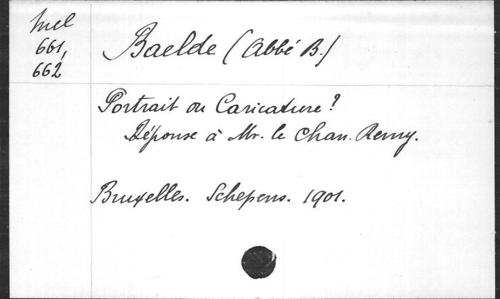 Mel
661,
662
Baelde (Abbé B.)
Portrait ou Caricature?
Réponse à Mr. le Chan. Remy.
Bruxelles. Schepens. 1901.